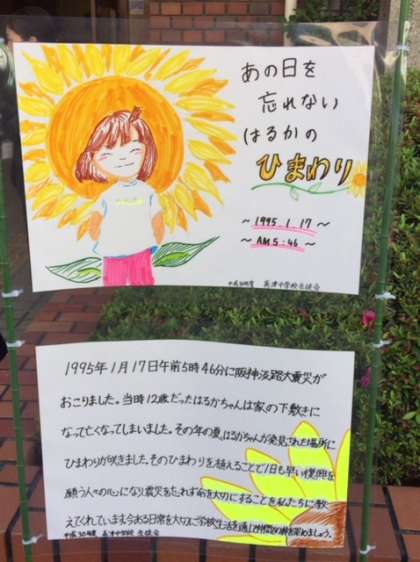 あの日を
忘れない
はるかの
ひまわり
～1995.1.17～
～AM5:46～
平成30年度 高津中学校生徒会
1995年1月17日午前5時46分に阪神淡路大震災が
おこりました。当時12歳だったはるかちゃんは家の下敷きに
なって亡くなってしまいました。その年の夏、はるかちゃんが発見された場所に
ひまわりが咲きました。そのひまわりを植えることで1日も早い復興を
願う人々の心になり震災を忘れず命を大切にすることを私たちに教
えてくれています。今ある日常を大切に学校生活を通し仲間との絆を深めましょう。
平成30年度 高津中学校 生徒会